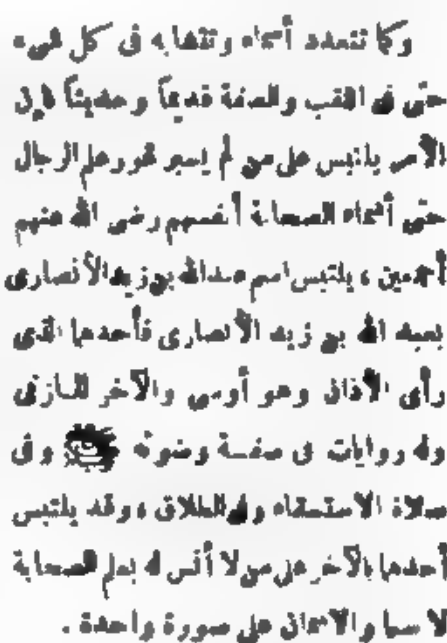 وكما تتعدد أسماء وتتشابه في كل شيء
حتى في اللقب والصفة قديماً وحديثاً فإن
الأمر يلتبس على من لم يسبر غور علم الرجال
حتى أسماء الصحابة أنفسهم رضى الله عنهم
أجمعين ، يلتبس اسم عبدالله بن زيد الأنصارى
بعبد الله بن زيد الأنصارى فأحدهما الذى
رأى الأذان وهو أوسى والآخر المازنى
وله روايات في صفة وضوئه ﷺ وفى
صلاة الاستسقاء وفى الطلاق ، وقد يلتبس
أحدهما بالآخر على من لا أنس له بعلم الصحابة
لا سيما والاسمان على صورة واحدة .